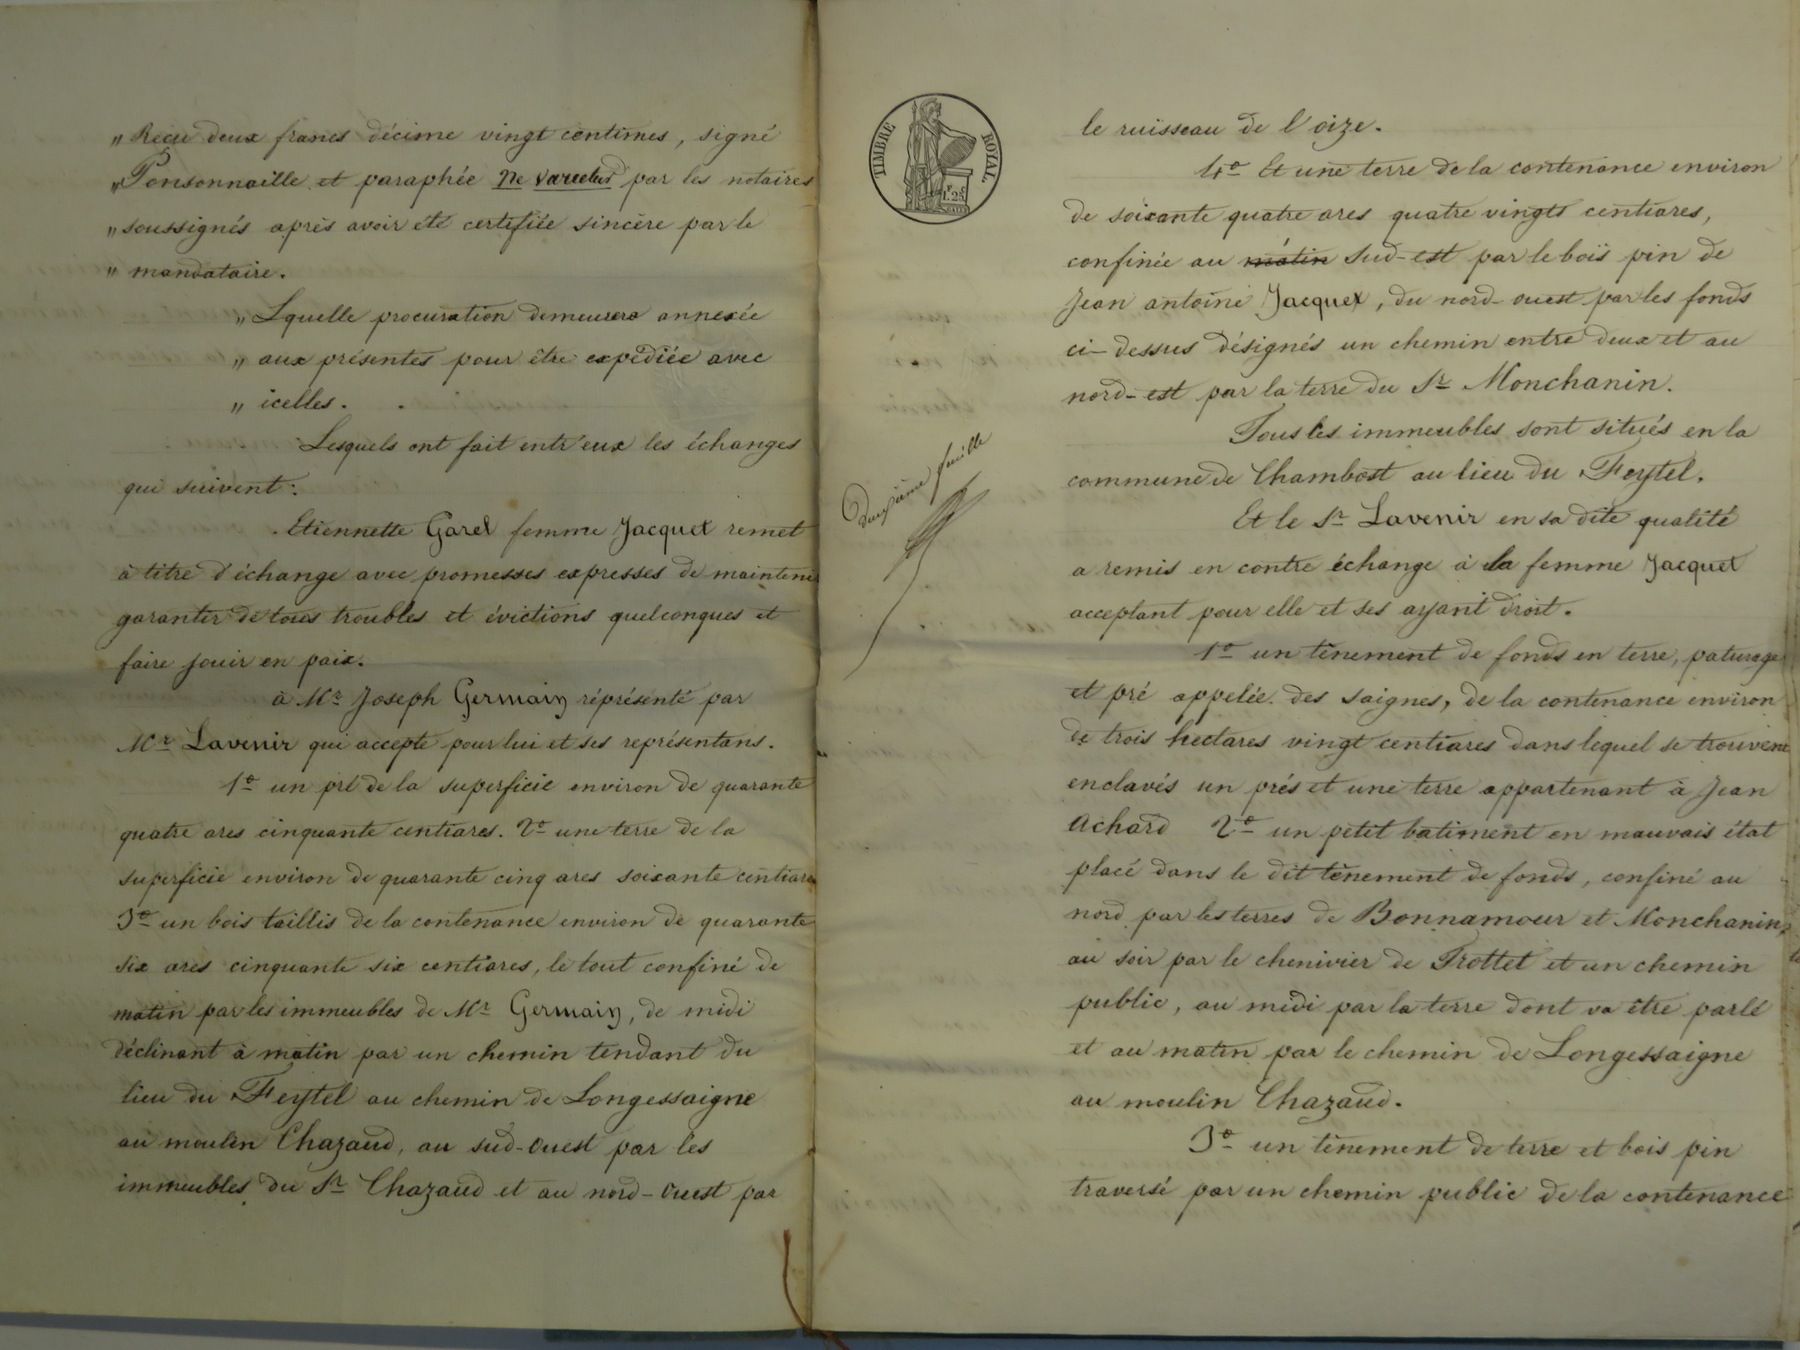 „ Reçu deux francs décime vingt centimes, signé
„ Ponsonnaille et paraphée ne varietur par les notaires
„ soussignés après avoir été certifiée sincère par le
„ mandataire.
„ Lquelle procuration demeurera annexée
„ aux présentes pour être expédiée avec
„ icelles.
Lesquels ont fait entr'eux les échanges
qui suivent :
Etiennette Garel femme Jacquet remet
à titre d'échange avec promesses expresses de maintenir
garantir de tous troubles et évictions quelconques et
faire jouir en paix.
à Mr Joseph Germain réprésenté par
Mr Lavenir qui accepte pour lui et ses représentans.
1º un pré de la superficie environ de quarante
quatre ares cinquante centiares. 2º une terre de la
superficie environ de quarante cinq ares soixante centiares
3º un bois taillis de la contenance environ de quarante
six ares cinquante six centiares, le tout confiné de
matin par les immeubles de Mr Germain, de midi
déclinant à matin par un chemin tendant du
lieu du Feytel au chemin de Longessaigne
au moulin Chazaud, au sud-ouest par les
immeubles du Sr Chazaud et au nord-ouest par
TIMBRE ROYAL
1F.25
Deuxième feuille
le ruisseau de l'oize.
4º Et une terre de la contenance environ
de soixante quatre ares quatre vingts centiares,
confinée au matin sud-est par le bois pin de
Jean antoine Jacquet, du nord-ouest par les fonds
ci-dessus désignés un chemin entre deux et au
nord-est par la terre du Sr Monchanin.
Tous les immeubles sont situés en la
commune de Chambost au lieu du Feytel.
Et le Sr Lavenir en sa dite qualité
a remis en contre échange à la femme Jacquet
acceptant pour elle et ses ayant droit.
1º un tènement de fonds en terre, paturage
et pré appelée des saignes, de la contenance environ
de trois hectares vingt centiares dans lequel se trouvent
enclavés un prés et une terre appartenant à Jean
Achard 2º un petit batiment en mauvais état
placé dans le dit tènement de fonds, confiné au
nord par les terres de Bonnamour et Monchanin,
au soir par le chenivier de Trottet et un chemin
public, au midi par la terre dont va être parlé
et au matin par le chemin de Longessaigne
au moulin Chazaud.
3º un tènement de terre et bois pin
traversé par un chemin public de la contenance